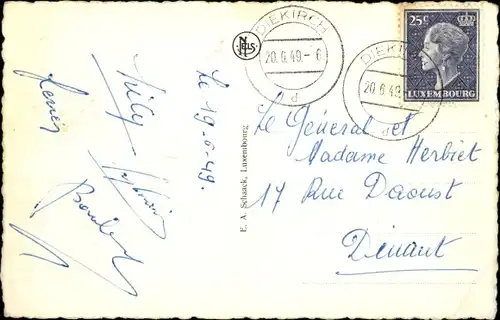 Le 19-6-49.
E. A. Schaack, Luxembourg
NELS
DIEKIRCH
20.6.49-6
d
DIEKIRCH
20.6.49
d
25c
LUXEMBOURG
Le Général et
Madame Herbiet
17 Rue Daoust
Dinant